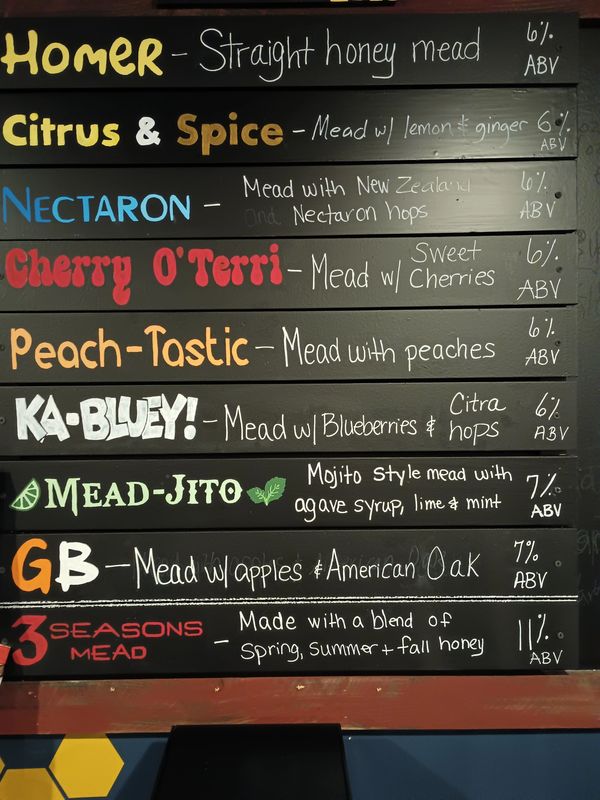 HOMER – Straight honey mead 6% ABV
Citrus & Spice – Mead w/ lemon & ginger 6% ABV
NECTARON – Mead with New Zealand 6%
and Nectaron hops ABV
Cherry O'Terri – Mead w/ Sweet Cherries 6% ABV
Peach-Tastic – Mead with peaches 6% ABV
KA-BLUEY! – Mead w/ Blueberries & Citra hops 6% ABV
MEAD-JITO Mojito Style mead with 7%
agave syrup, lime & mint ABV
GB – Mead w/ apples & American Oak 7% ABV
3 SEASONS MEAD – Made with a blend of 11%
Spring, summer + fall honey ABV